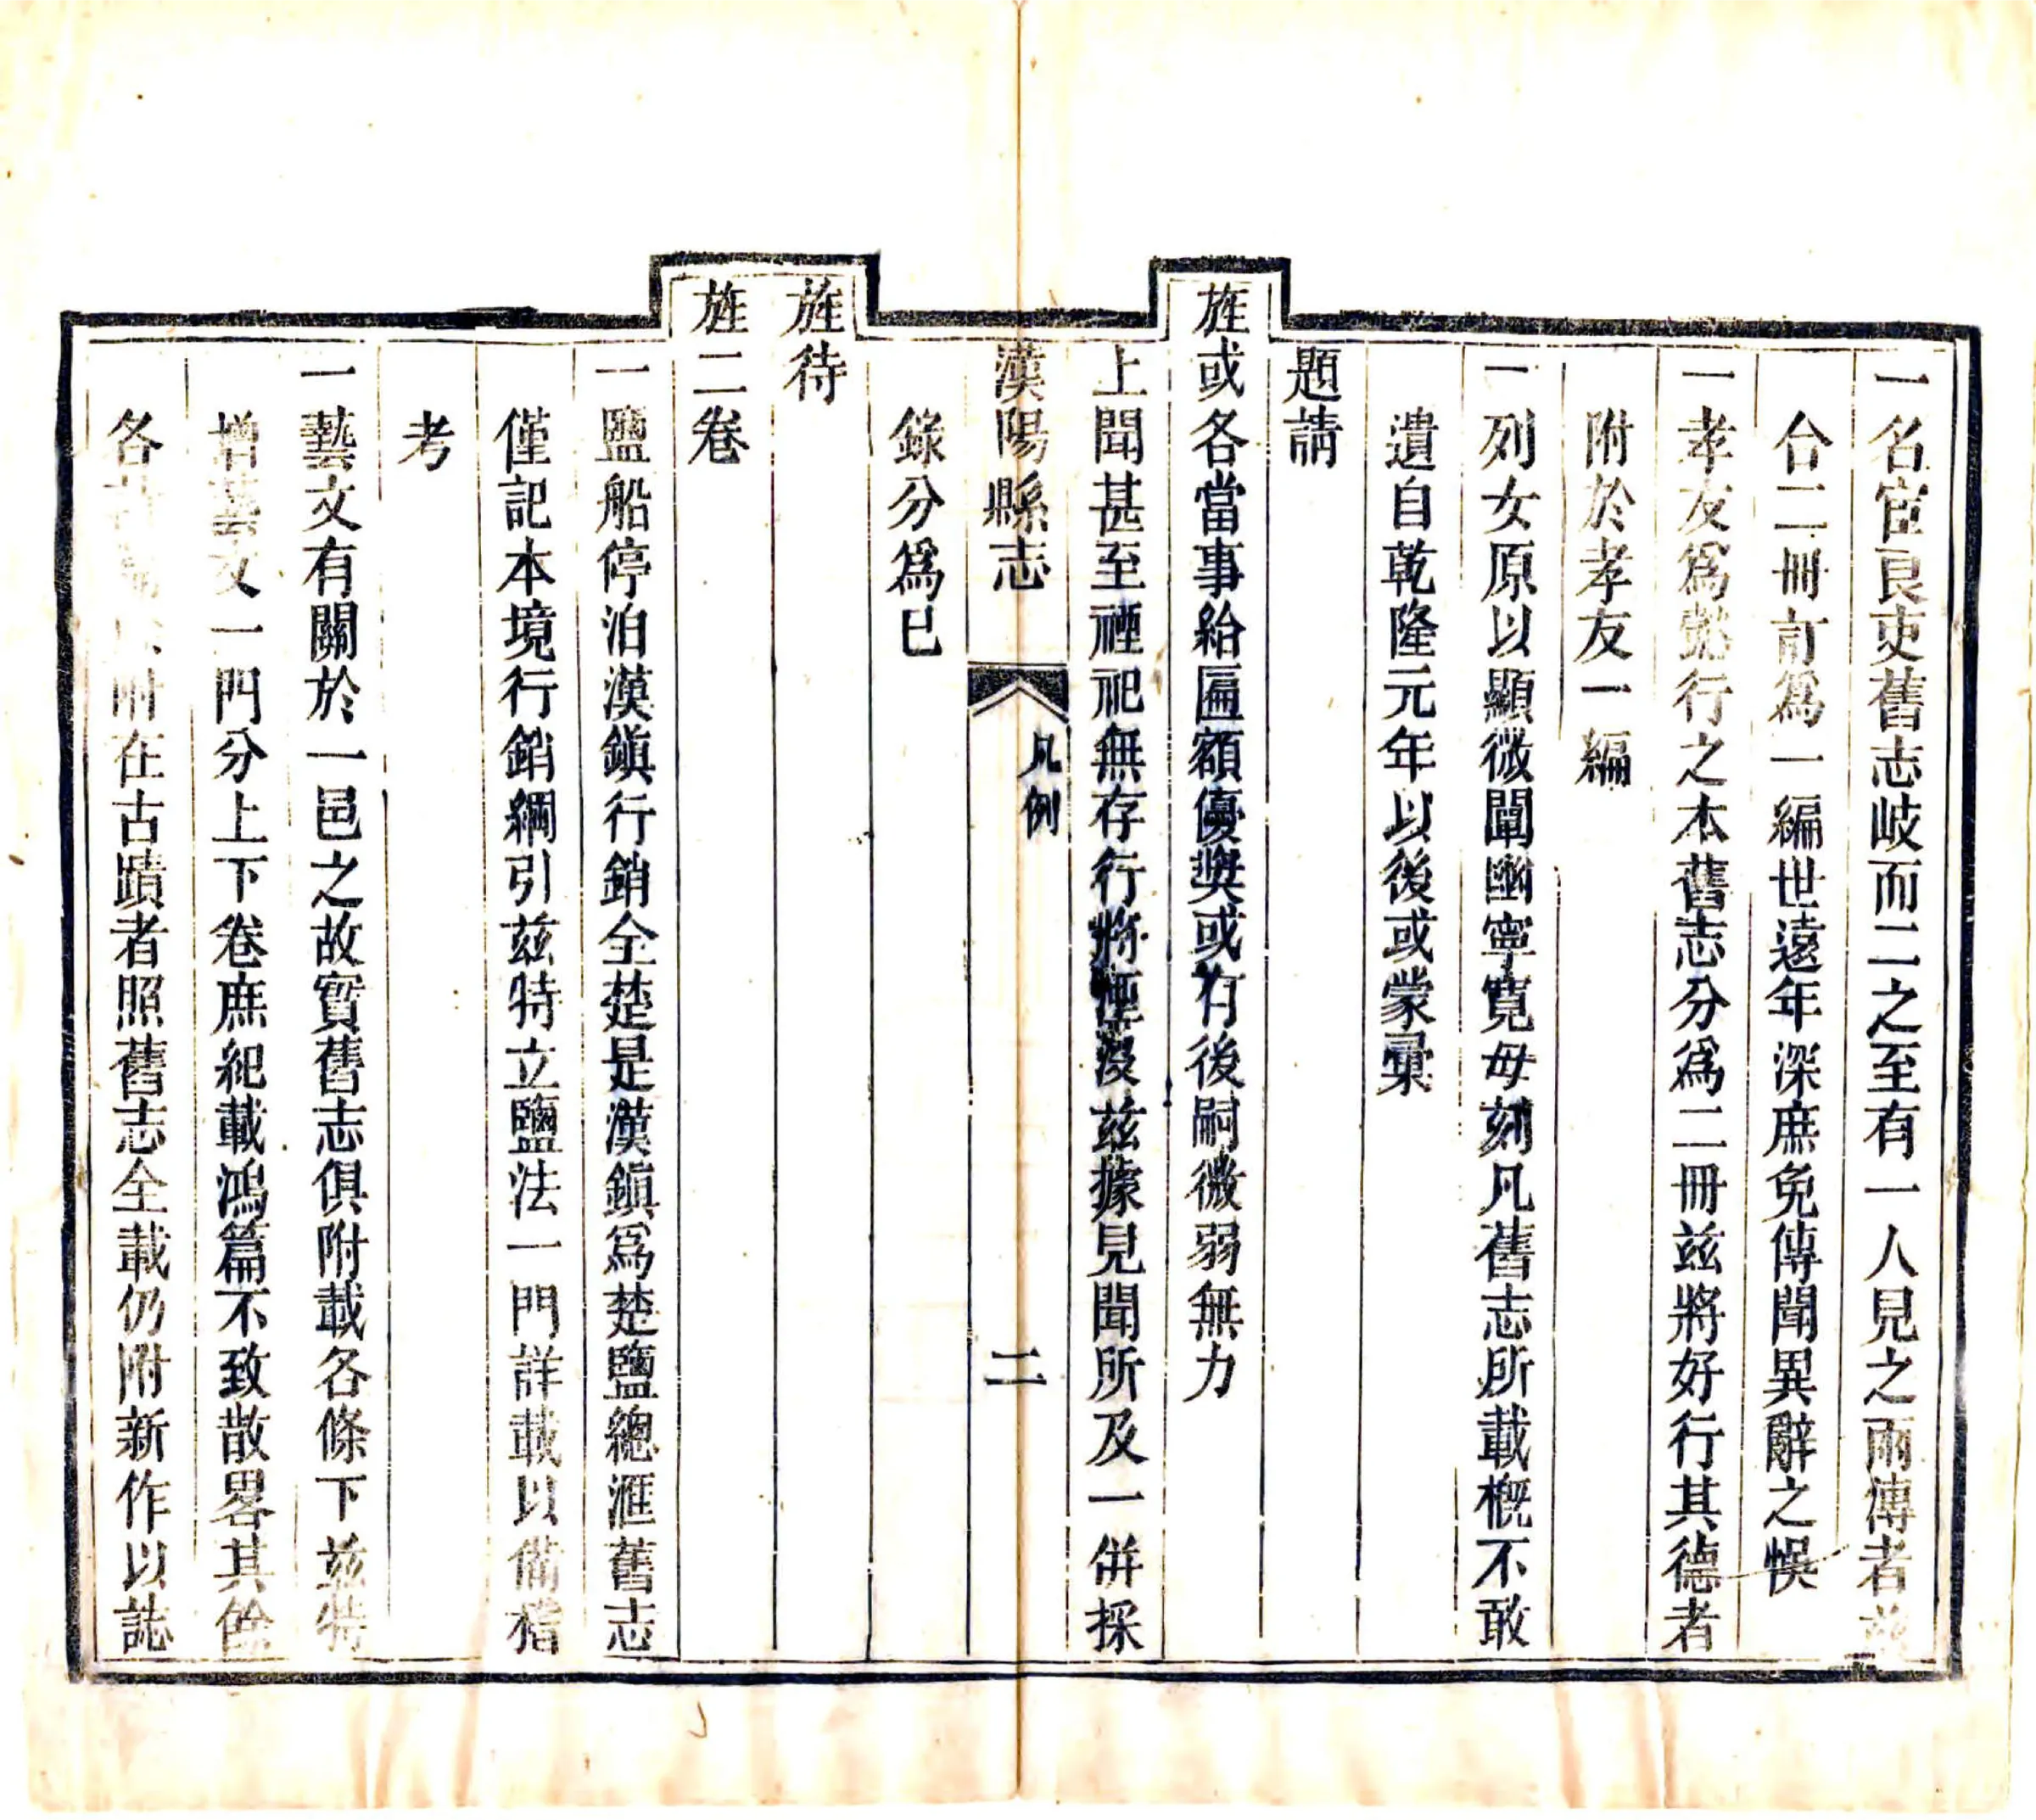 一名宦良吏舊志岐而二之至有一人見之兩傳者兹
合二冊訂爲一編世遠年深庶免傳聞異辭之悞
一孝友爲懿行之本舊志分爲二冊兹將好行其德者
附於孝友一編
一列女原以顯微闡幽寧寬毋刻凡舊志所載槪不敢
遺自乾隆元年以後或蒙彙
題請
旌或各當事給匾額優奬或有後嗣微弱無力
上聞甚至禋祀無存行將湮没兹據見聞所及一併採
漢陽縣志
凡例
二
錄分爲已
旌待
旌二卷
一鹽船停泊漢鎭行銷全楚是漢鎭爲楚鹽總滙舊志
僅記本境行銷綱引兹特立鹽法一門詳載以備稽
考
一藝文有關於一邑之故實舊志俱附載各條下兹特
增藝文一門分上下卷庶紀載鴻篇不致散畧其餘
各附在古蹟者照舊志全載仍附新作以誌